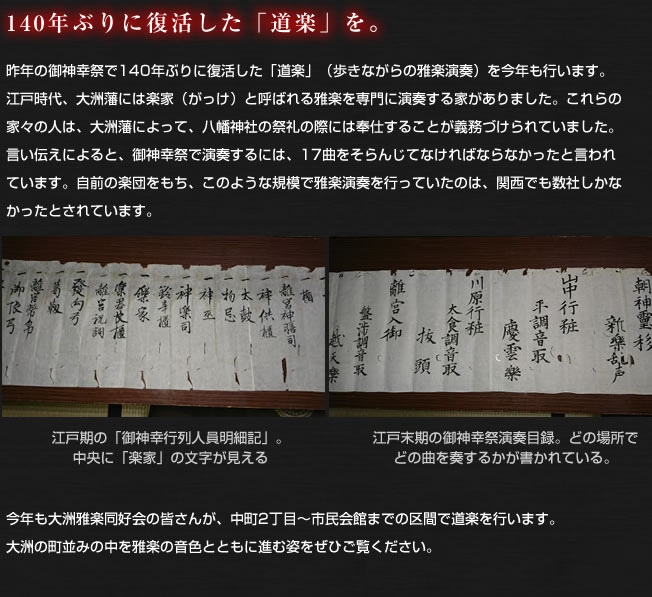 140年ぶりに復活した「道楽」を。
昨年の御神幸祭で140年ぶりに復活した「道楽」（歩きながらの雅楽演奏）を今年も行います。
江戸時代、大洲藩には楽家（がっけ）と呼ばれる雅楽を専門に演奏する家がありました。これらの
家々の人は、大洲藩によって、八幡神社の祭礼の際には奉仕することが義務づけられていました。
言い伝えによると、御神幸祭で演奏するには、17曲をそらんじてなければならなかったと言われ
ています。自前の楽団をもち、このような規模で雅楽演奏を行っていたのは、関西でも数社しかな
かったとされています。
一離宮神膳司
一神供櫃
一太鼓
一物忌
一神巫
一神樂司
一鈴辛櫃
一樂家
一樂器長櫃
一離宮祝詞
朝神靈移
新樂乱声
山中行粧
平調音取
慶雲樂
川原行粧
太食調音取
抜頭
離宮入御
盤渉調音取
越天楽
江戸期の「御神幸行列人員明細記」。
中央に「楽家」の文字が見える
江戸末期の御神幸祭演奏目録。どの場所で
どの曲を奏するかが書かれている。
今年も大洲雅楽同好会の皆さんが、中町2丁目～市民会館までの区間で道楽を行います。
大洲の町並みの中を雅楽の音色とともに進む姿をぜひご覧ください。